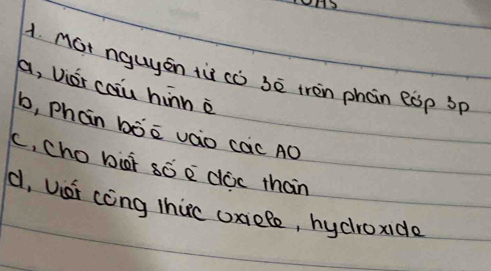 1. Một nguyên tử có 3ē trên phân lớp 3p
a, Viết cấu hình ē
b, Phân bố ē vào các AO
c, Cho biết số ē độc thân
d, viết công thức oxide, hydroxide